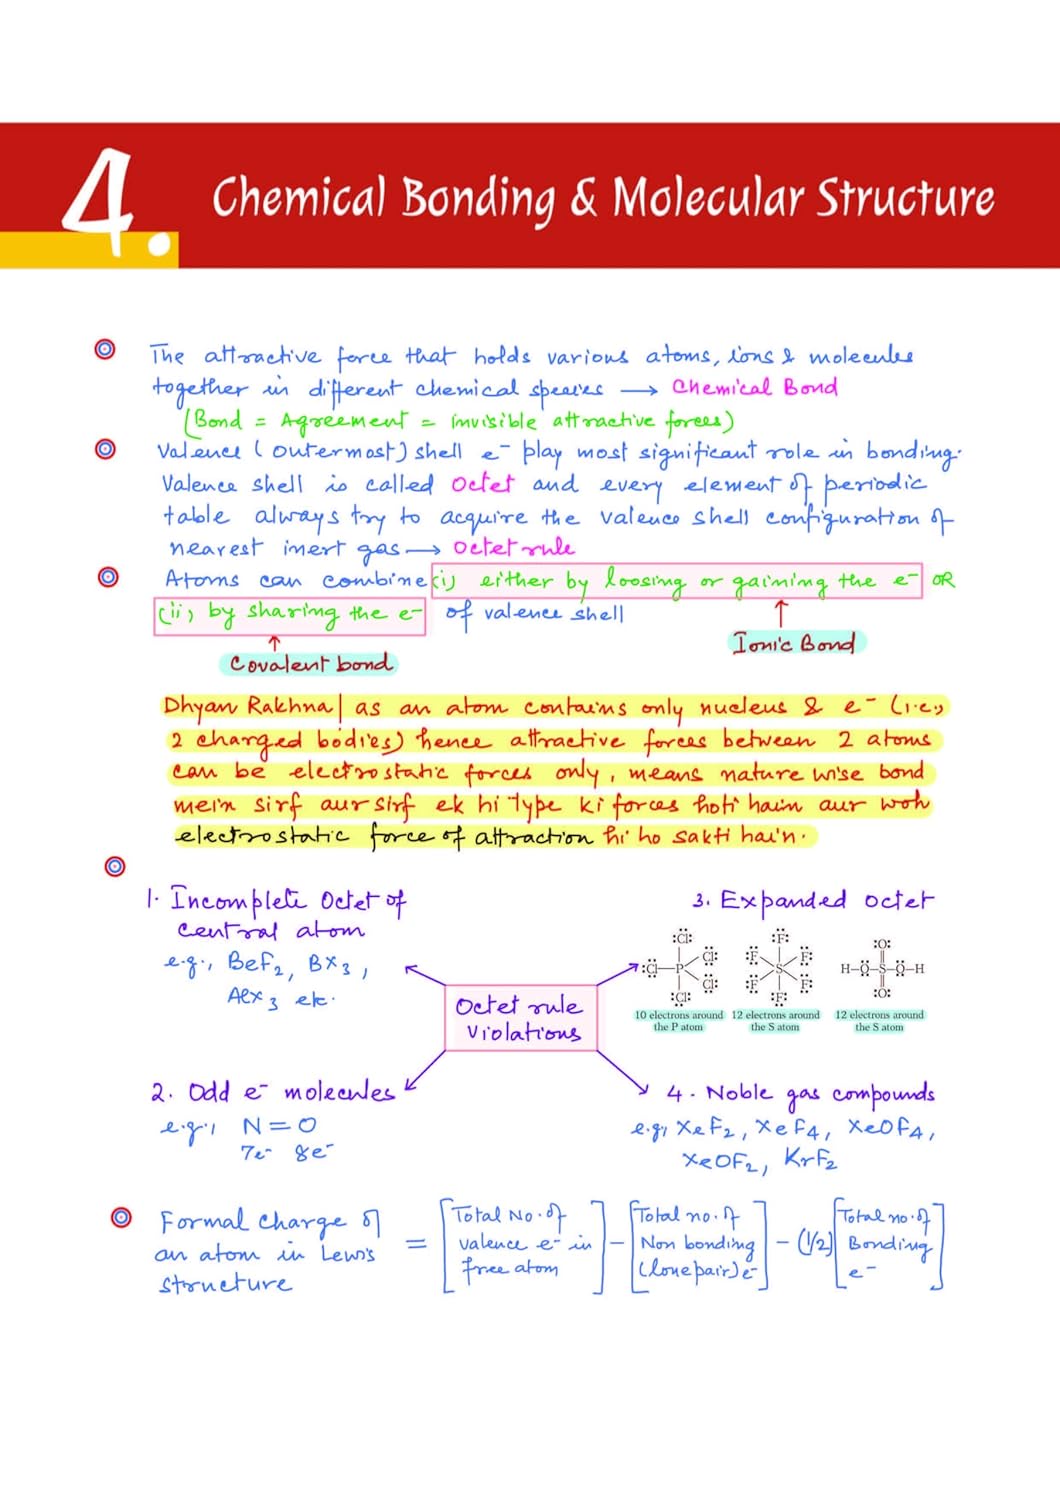 4.
Chemical Bonding & Molecular Structure
The attractive force that holds various atoms, ions & molecules
together in different chemical species → Chemical Bond
(Bond = Agreement = invisible attractive forces)
Valence (outermost) shell e⁻ play most significant role in bonding.
Valence shell is called Octet and every element of periodic
table always try to acquire the valence shell configuration of
nearest inert gas → Octet rule
Atoms can combine (i) either by loosing or gaining the e⁻ OR
(ii) by sharing the e⁻ of valence shell
↑ Covalent bond
↑ Ionic Bond
Dhyan Rakhna | as an atom contains only nucleus & e⁻ (i.e.,
2 charged bodies) hence attractive forces between 2 atoms
can be electrostatic forces only, means nature wise bond
mein sirf aur sirf ek hi type ki forces hoti hain aur woh
electrostatic force of attraction hi ho sakti hain.
1. Incomplete Octet of
central atom
e.g., BeF₂, BX₃,
AlX₃ etc.
3. Expanded octet
:Cl:
:Cl–P Cl: Cl:
:Cl:
10 electrons around
the P atom
:F:
:F S F:
:F F:
:F:
12 electrons around
the S atom
:O:
H–O–S–O–H
:O:
12 electrons around
the S atom
Octet rule
Violations
2. Odd e⁻ molecules
e.g., N=O
7e⁻ 8e⁻
4. Noble gas compounds
e.g, XeF₂, XeF₄, XeOF₄,
XeOF₂, KrF₂
Formal charge of
an atom in Lewis
structure
= [Total No. of
valence e⁻ in
free atom]
– [Total no. of
Non bonding
(lone pair) e⁻]
– (1/2) [Total no. of
Bonding
e⁻]